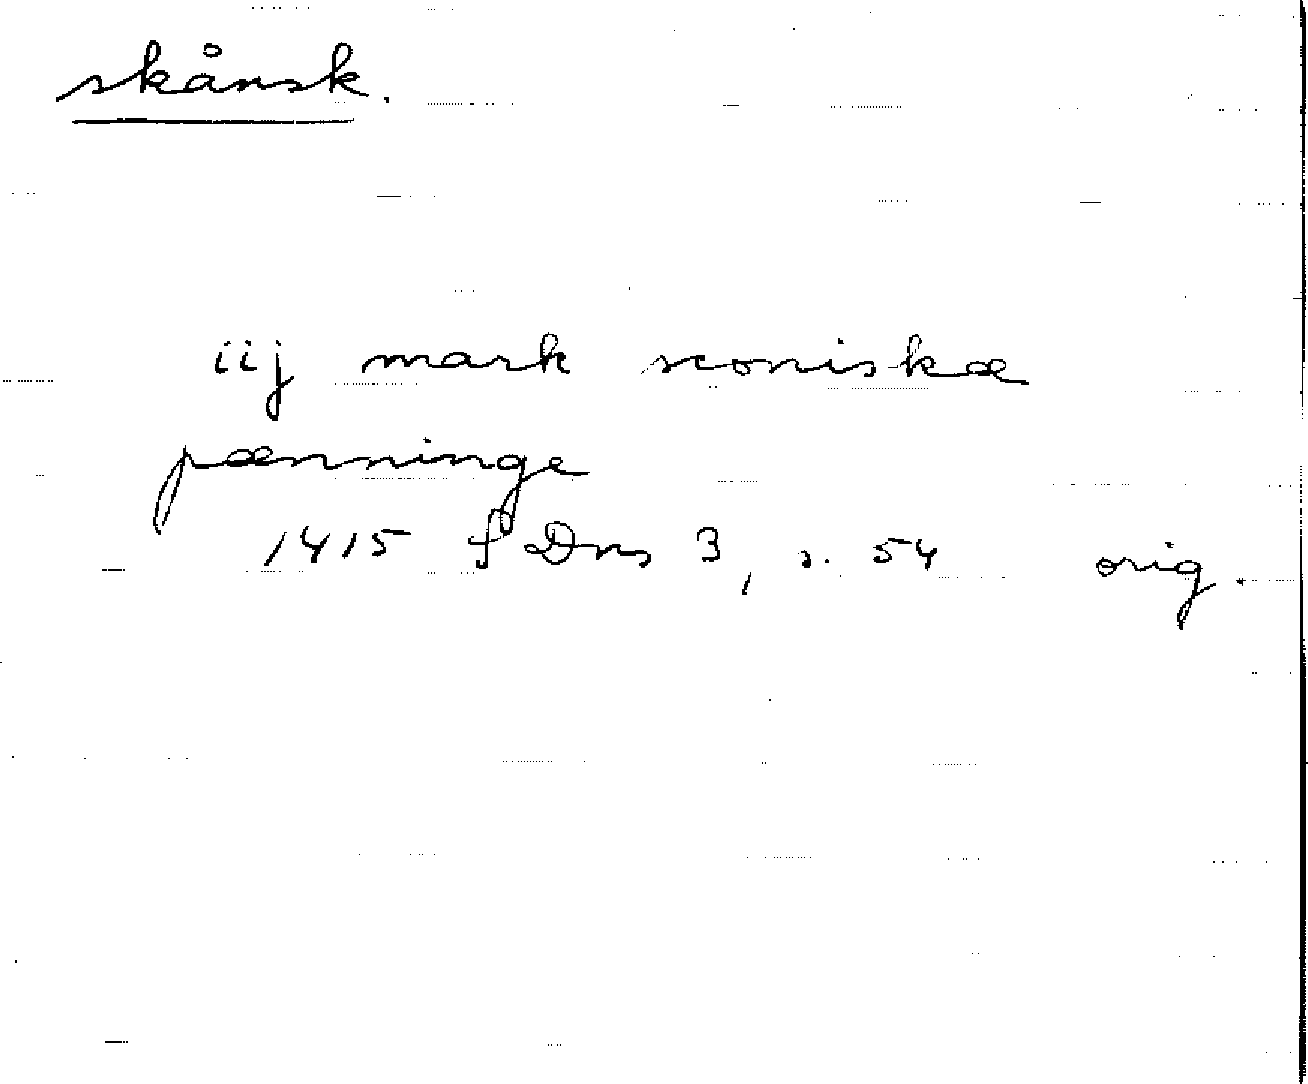 skånsk.
iij mark sconiskæ
pænninge
1415 SDns 3, s. 54 orig.